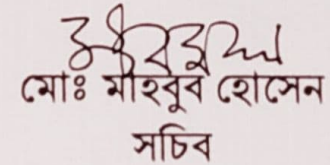 মোঃ মাহবুব হোসেন
সচিব